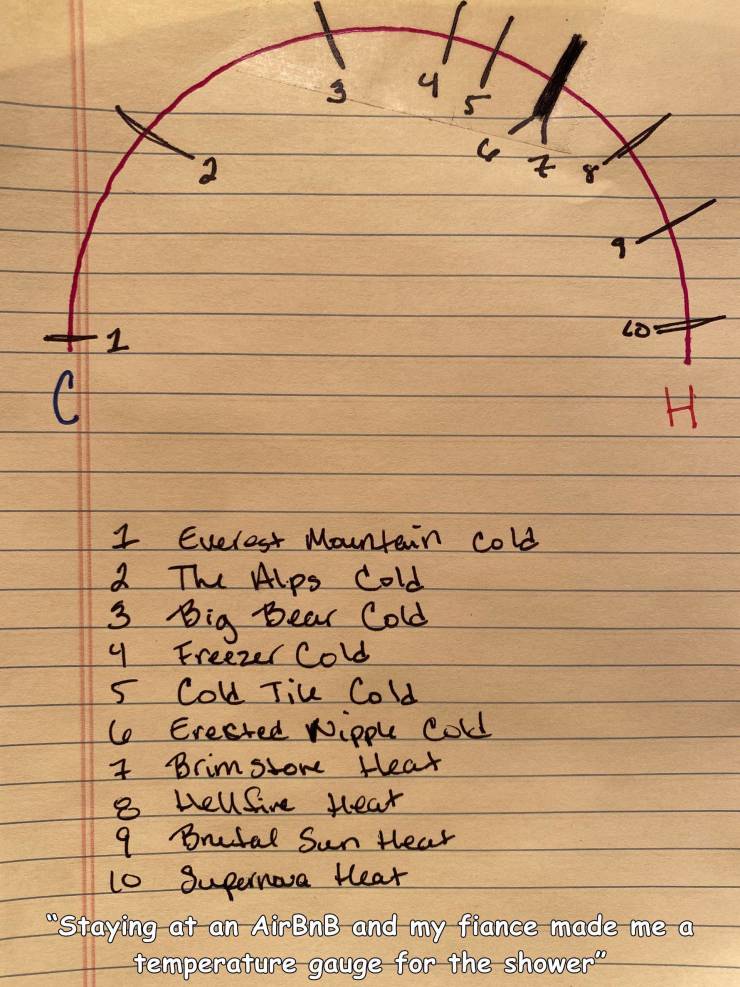 3
4
5
6
7
2
8
9
10
1
C
H
1 Everest Mountain Cold
2 The Alps Cold
3 Big Bear Cold
4 Freezer Cold
5 Cold Tile Cold
6 Erected Nipple Cold
7 Brimstone Heat
8 Hellfire Heat
9 Brutal Sun Heat
10 Supernova Heat
"Staying at an AirBnB and my fiance made me a
temperature gauge for the shower"